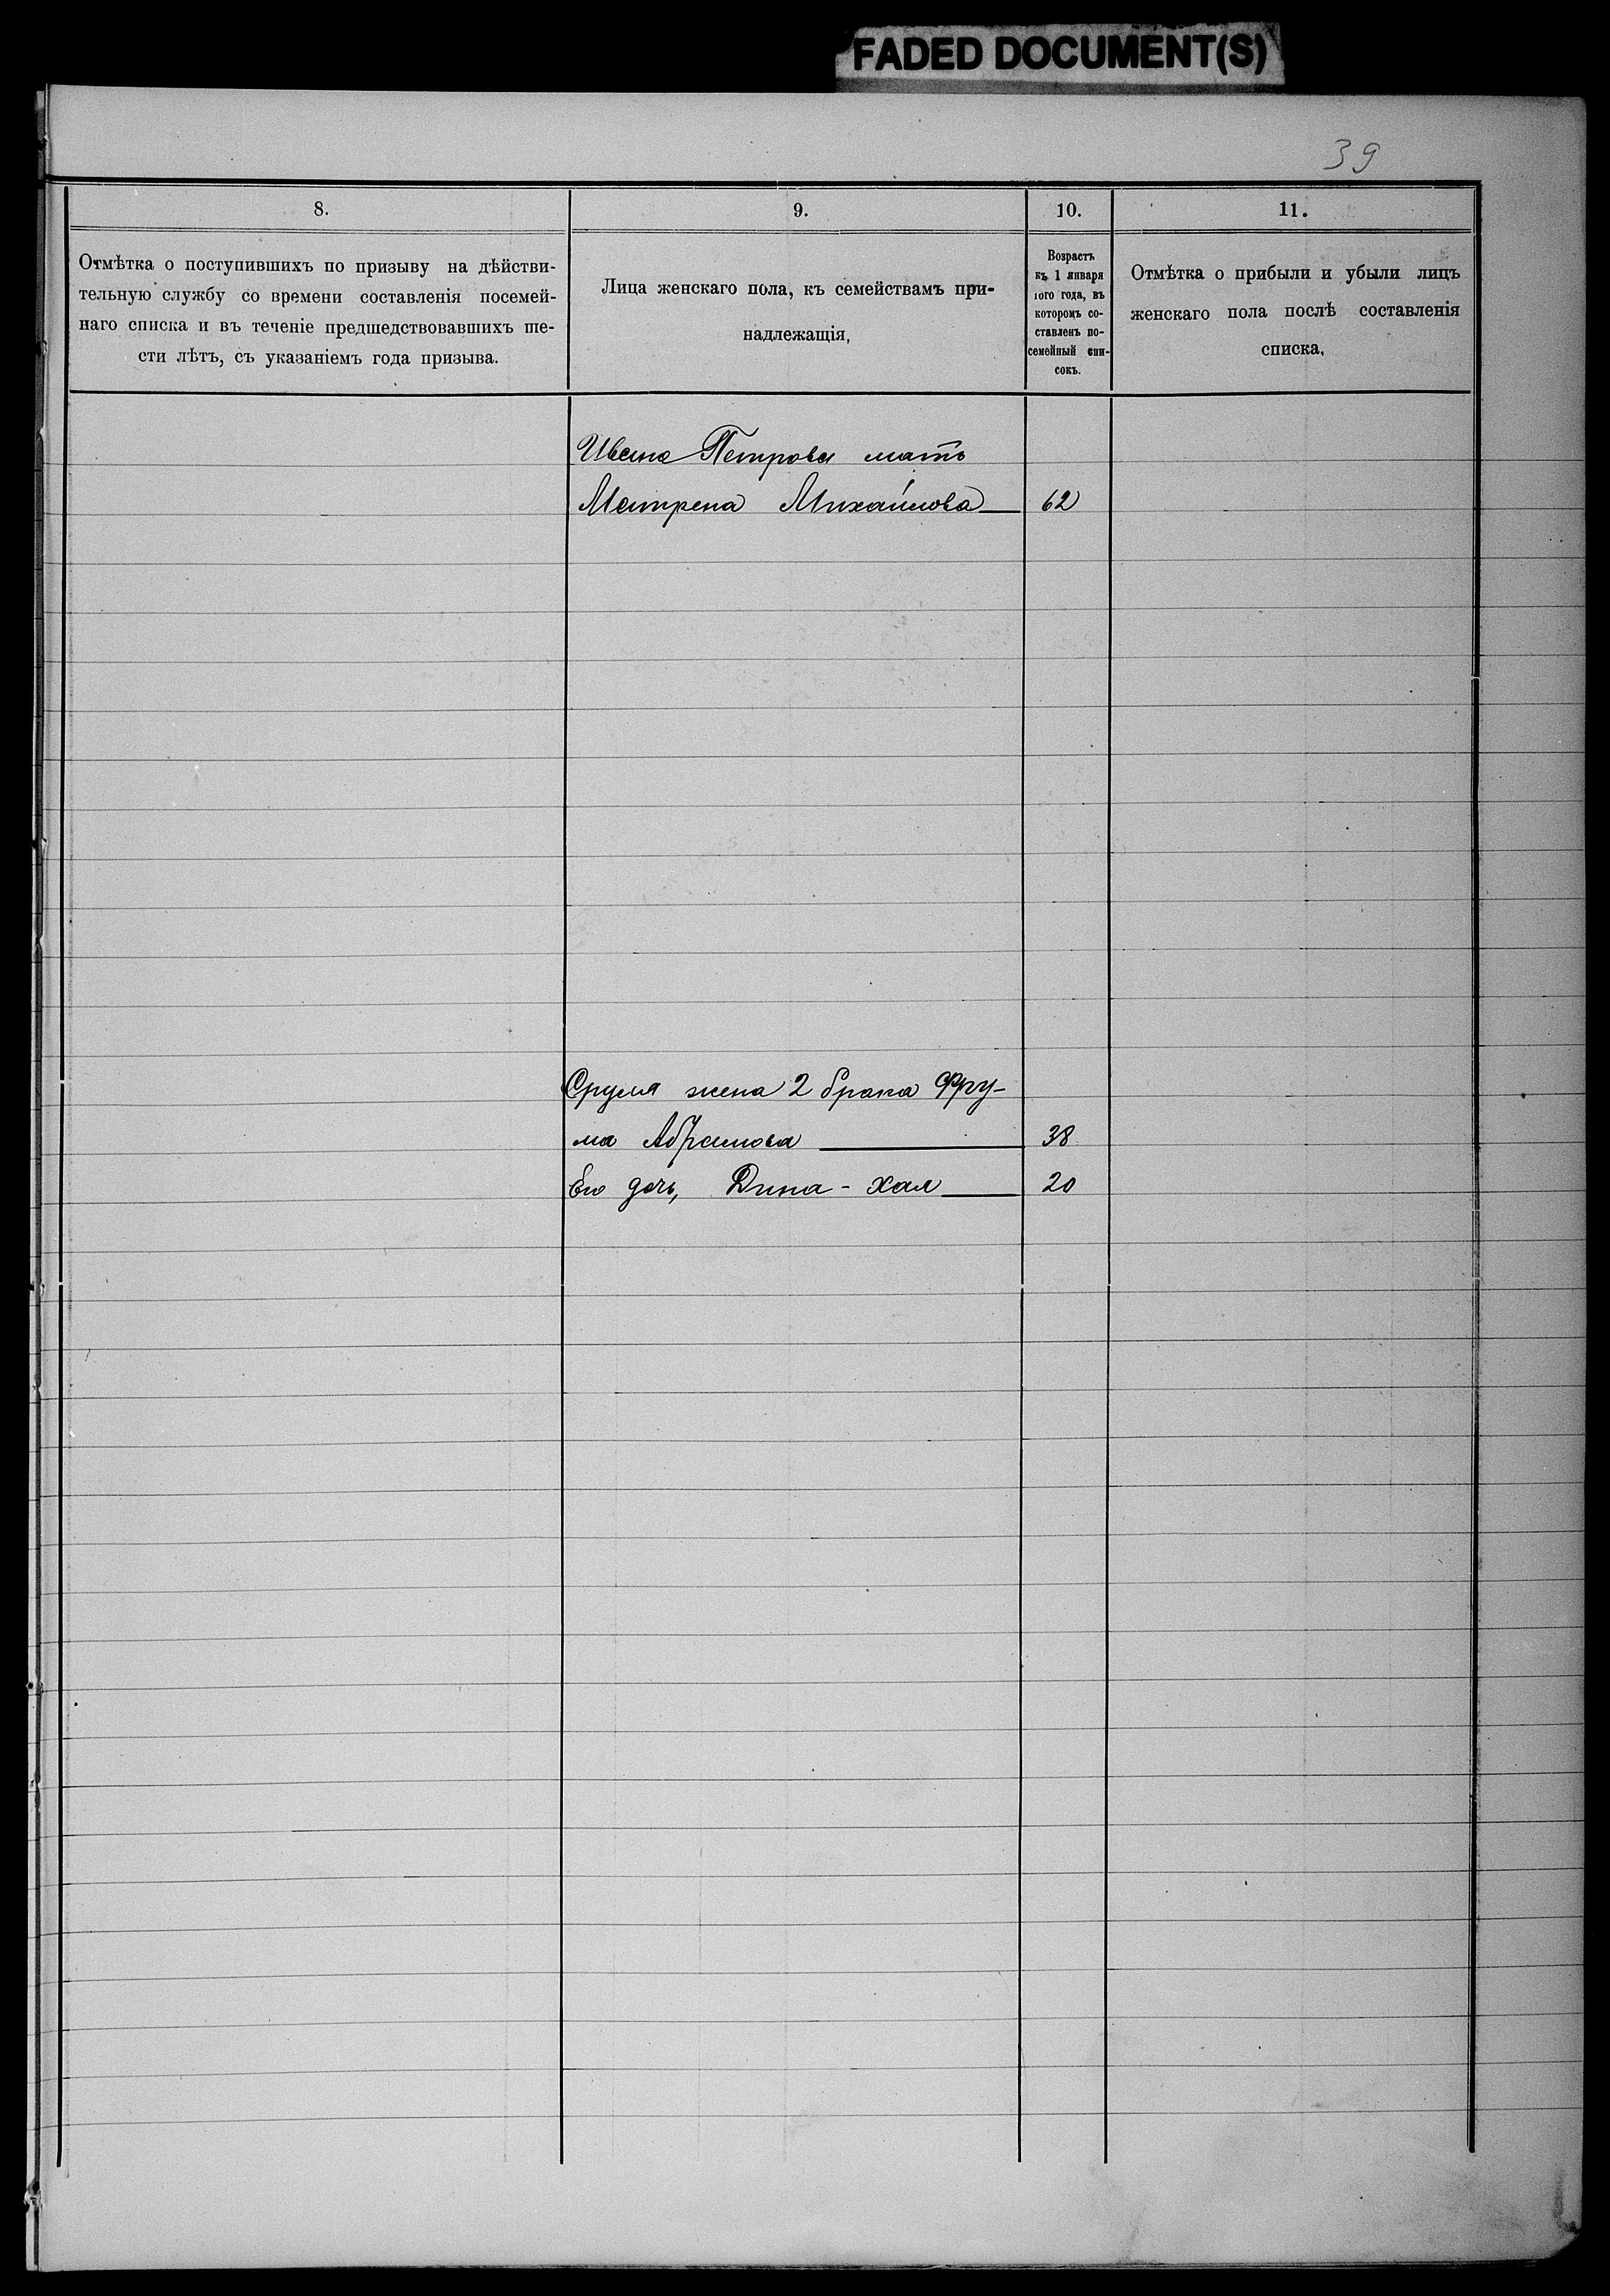 FADED DOCUMENT(S)
39
8.
9.
10.
11.
Отмѣтка о поступившихъ по призыву на дѣйстви-
тельную службу со времени составленія посемей-
наго списка и въ теченіе предшедствовавшихъ ше-
сти лѣтъ, съ указаніемъ года призыва.
Лица женскаго пола, къ семействамъ при-
надлежащія,
Возрастъ
къ 1 января
того года, въ
которомъ со-
ставленъ по-
семейный спи-
сокъ.
Отмѣтка о прибыли и убыли лицъ
женскаго пола послѣ составленія
списка.
Ивана Петрова мать
Матрена Михайлова 62
Сруля жена 2 брака Фру-
ма Абрамова 38
Его дочь, Дина-Хая 20